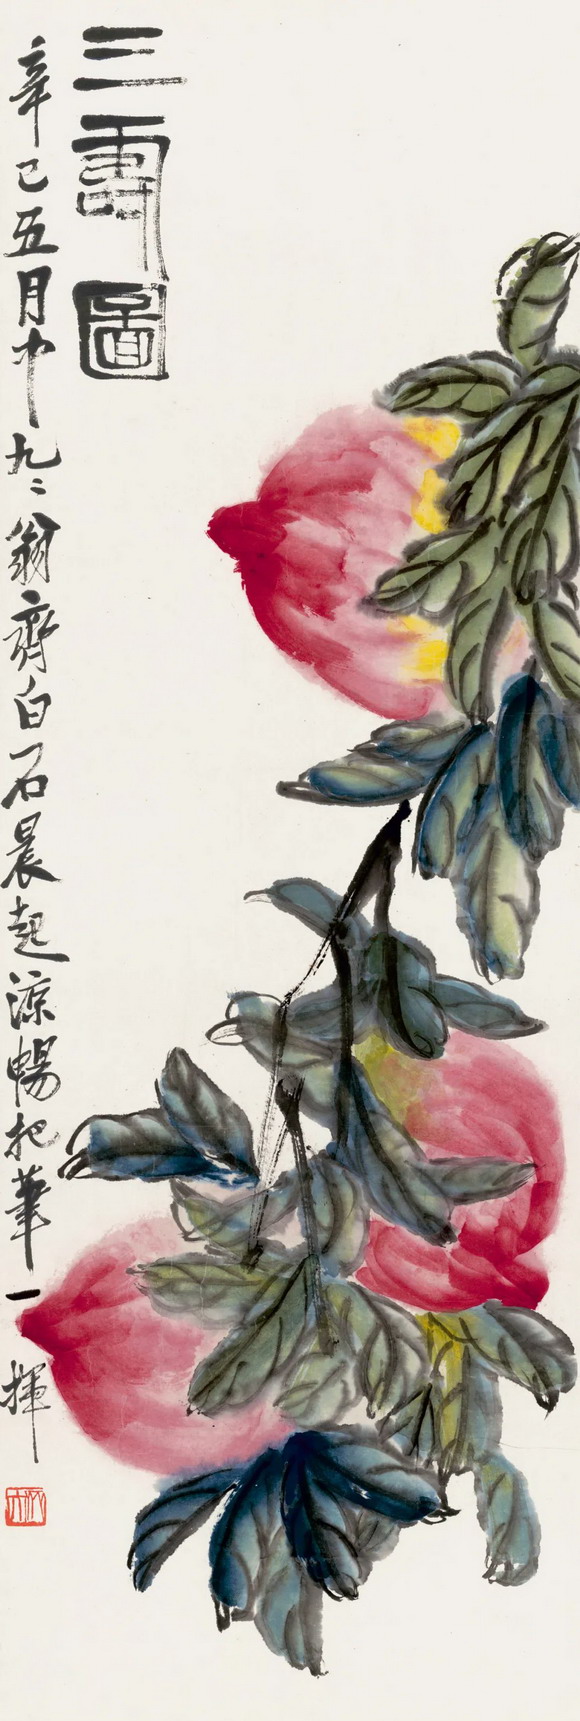 三壽圖
辛巳五月中九九翁齊白石晨起涼暢把筆一揮